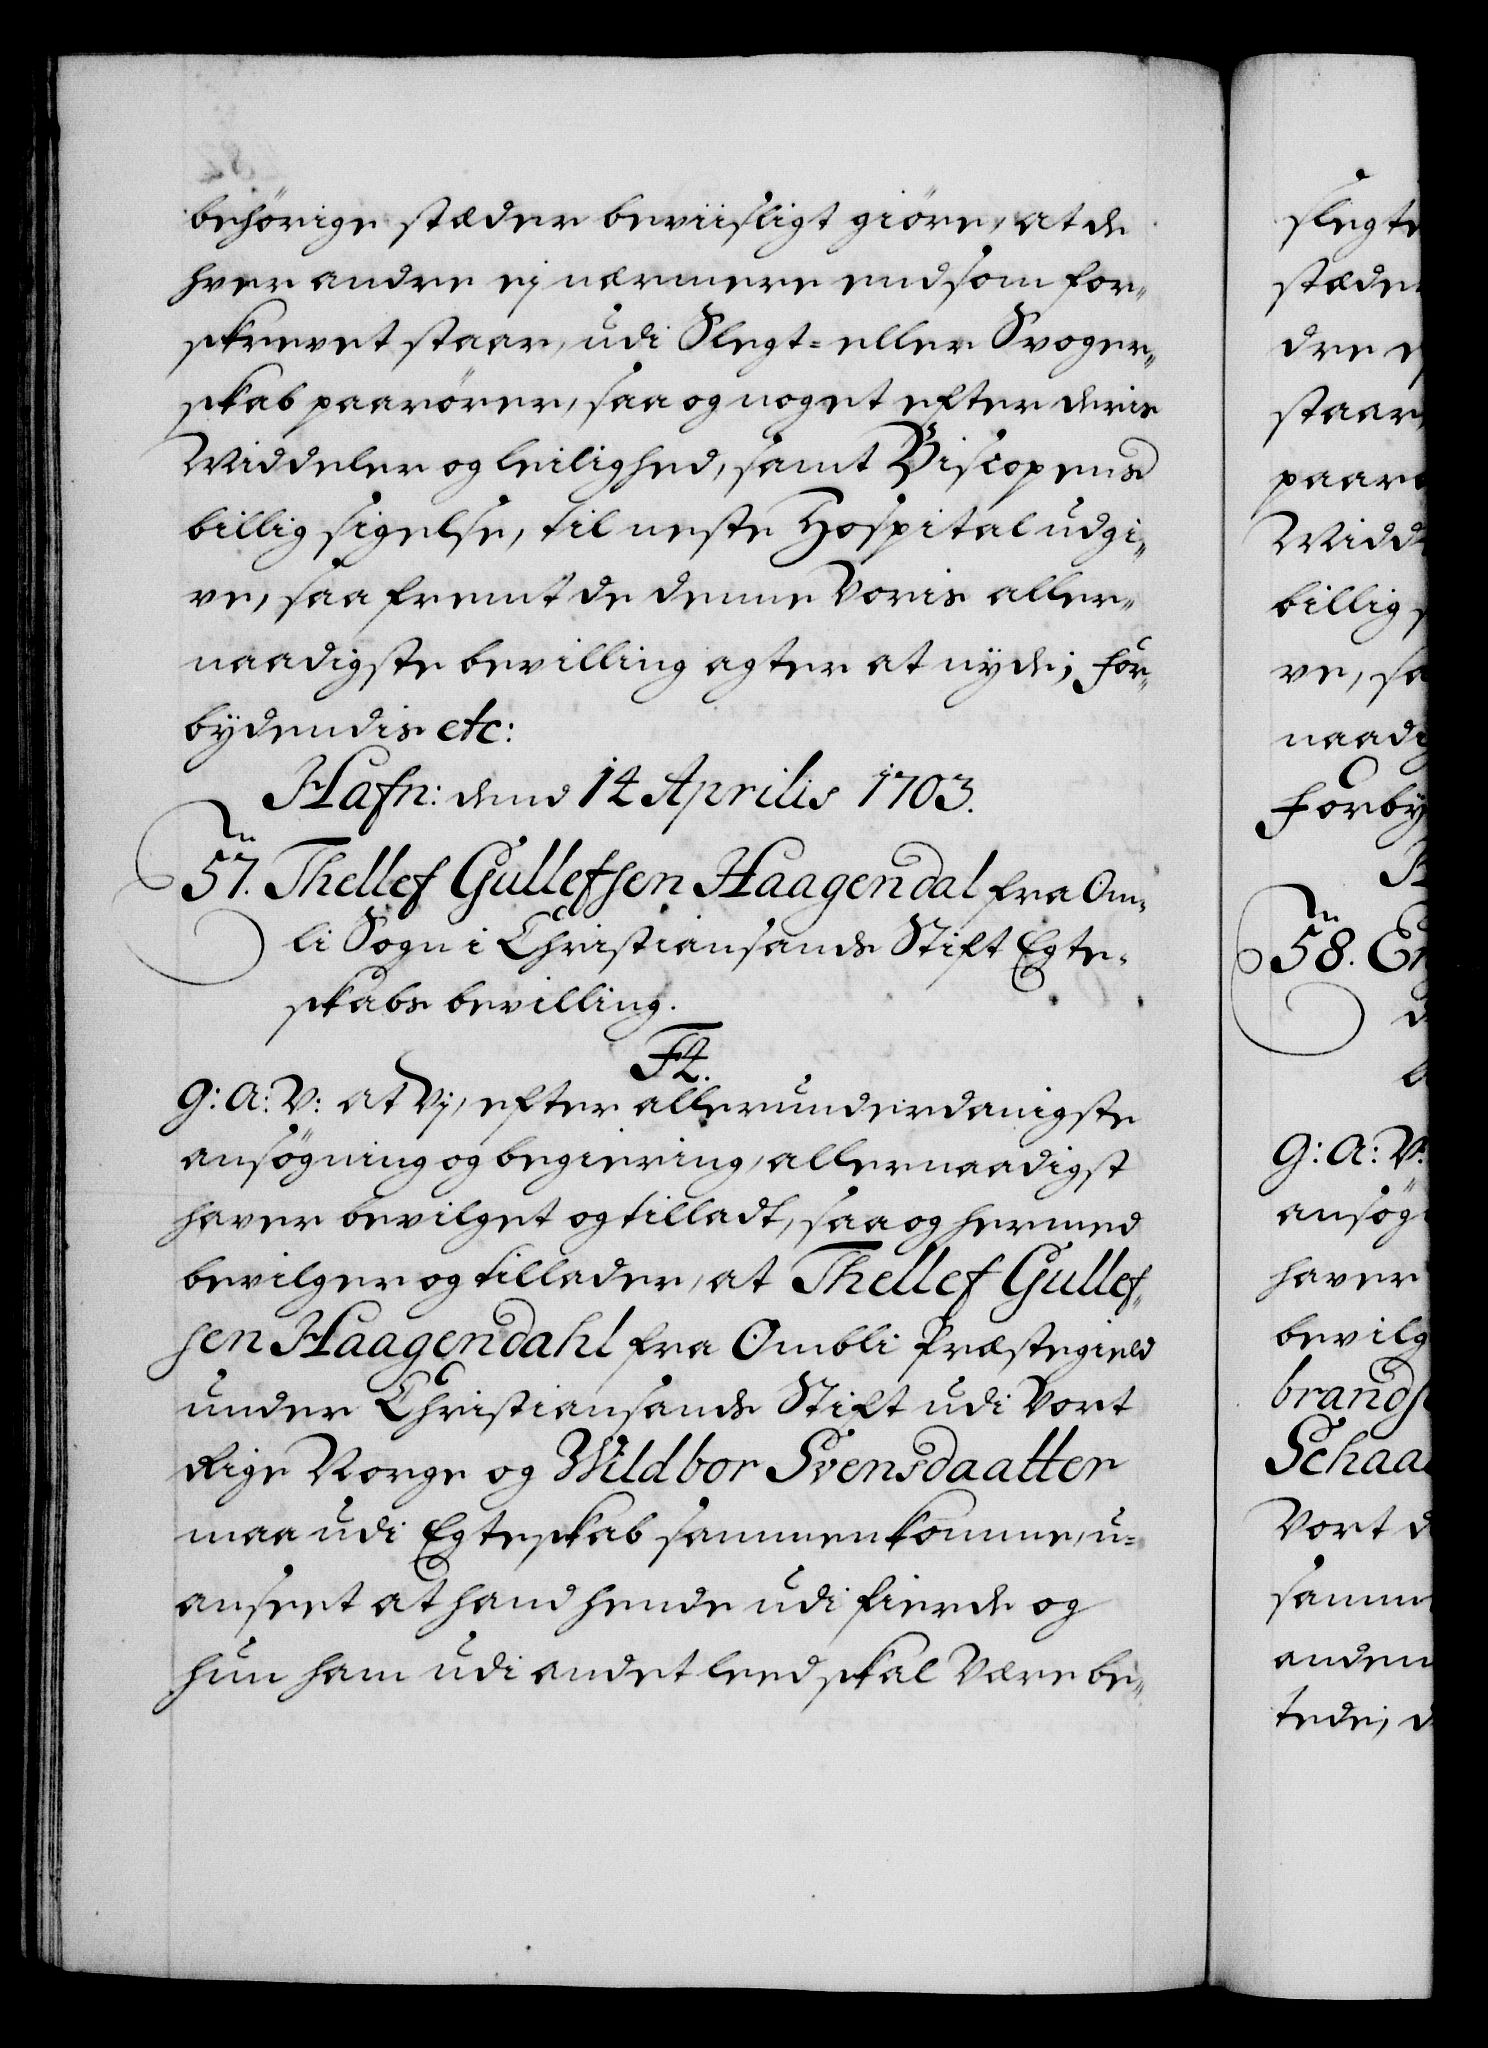 behörige stæder beviisligt giöre, at de
hver andre ej nærmere end som for-
skrevet staar, udi Slegt- eller Svoger-
skab paarörer, saa og noget efter deris
Middeler og leilighed, samt Biscopens
billig sigelse, til neste Hospital udgi-
ve, saa fremt de denne Voris aller-
naadigste bevilling agter at nyde; For-
bydendis etc:
Hafn: dend 14 Aprilis 1703.
57. Thellef Gullefsen Haagendal fra Om-
li Sogn i Christiansands Stift Egte-
skabs bevilling.
F4.
G: A: V: at Vj, efter allerunderdanigste
ansögning og begiering, allernaadigst
haver bevilget og tilladt, saa og hermed
bevilger og tillader, at Thellef Gullef-
sen Haagendahl fra Ombli Præstegield
under Christiansands Stift udi Vort
Rige Norge og Wildbor Svensdaatter
maa udi Egteskab sammenkomme, u-
anseet at hand hende udi fierde og
hun ham udi andet leed skal Være be-
slegte
stæder
dre e
staar,
paar
Midd
billig s
ve, sa
naadi
Forby
58. En
G: A: V:
ansög
haver
bevilg
brands
Schaa
Vort
samm
anden
tede; d